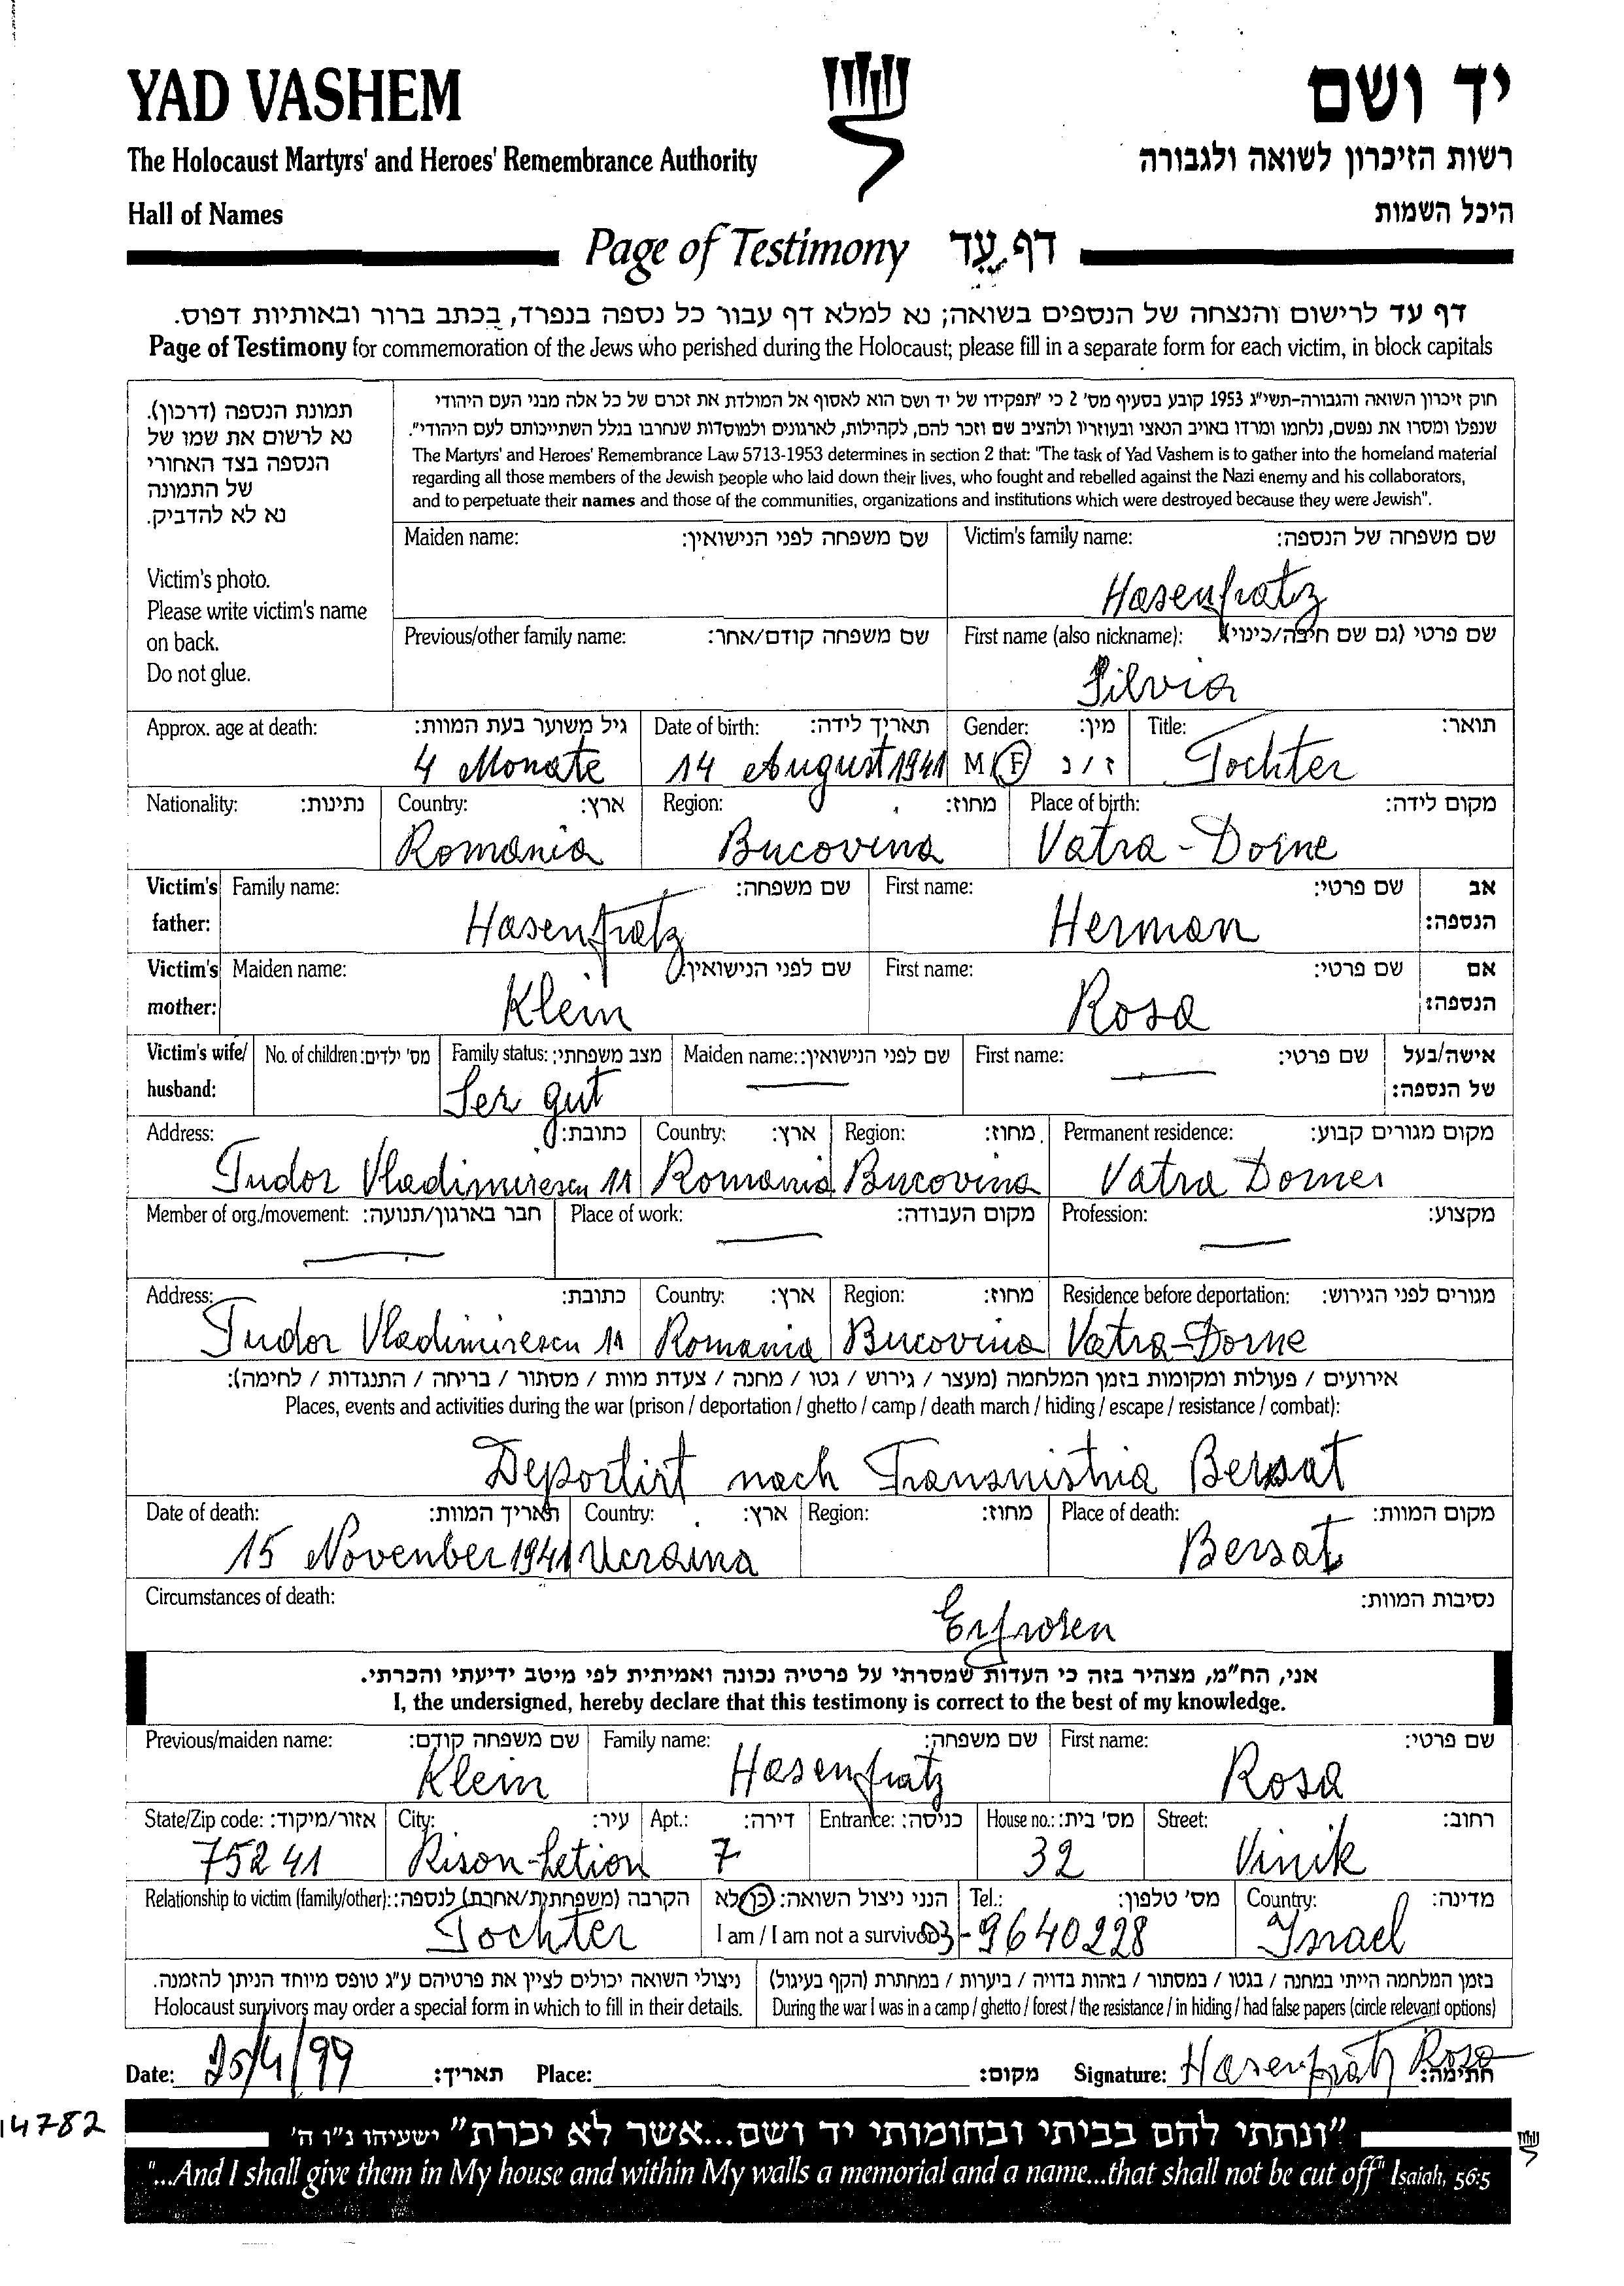 YAD VASHEM
יד ושם
The Holocaust Martyrs' and Heroes' Remembrance Authority
רשות הזיכרון לשואה ולגבורה
Hall of Names
היכל השמות
Page of Testimony דף עֵד
דף עד לרישום והנצחה של הנספים בשואה; נא למלא דף עבור כל נספה בנפרד, בכתב ברור ובאותיות דפוס.
Page of Testimony for commemoration of the Jews who perished during the Holocaust; please fill in a separate form for each victim, in block capitals
תמונת הנספה (דרכון).
נא לרשום את שמו של
הנספה בצד האחורי
של התמונה
נא לא להדביק.
Victim's photo.
Please write victim's name
on back.
Do not glue.
חוק זיכרון השואה והגבורה-תשי"ג 1953 קובע בסעיף מס' 2 כי "תפקידו של יד ושם הוא לאסוף אל המולדת את זכרם של כל אלה מבני העם היהודי
שנפלו ומסרו את נפשם, נלחמו ומרדו באויב הנאצי ובעוזריו ולהציב שם וזכר להם, לקהילות, לארגונים ולמוסדות שנחרבו בגלל השתייכותם לעם היהודי".
The Martyrs' and Heroes' Remembrance Law 5713-1953 determines in section 2 that: "The task of Yad Vashem is to gather into the homeland material
regarding all those members of the Jewish people who laid down their lives, who fought and rebelled against the Nazi enemy and his collaborators,
and to perpetuate their names and those of the communities, organizations and institutions which were destroyed because they were Jewish".
Maiden name: שם משפחה לפני הנישואין: Victim's family name: שם משפחה של הנספה:
Hasenfratz
Previous/other family name: שם משפחה קודם/אחר: First name (also nickname): שם פרטי (גם שם חיבה/כינוי):
Silvia
Approx. age at death: גיל משוער בעת המוות: Date of birth: תאריך לידה: Gender: מין: Title: תואר:
4 Monate 14 August 1941 M F ז / נ Tochter
Nationality: נתינות: Country: ארץ: Region: מחוז: Place of birth: מקום לידה:
Romania Bucovina Vatra-Dorne
Victim's father: Family name: שם משפחה: First name: שם פרטי: אב הנספה:
Hasenfratz Herman
Victim's mother: Maiden name: שם לפני הנישואין: First name: שם פרטי: אם הנספה:
Klein Rosa
Victim's wife/ husband: No. of children: מס' ילדים: Family status: מצב משפחתי: Maiden name: שם לפני הנישואין: First name: שם פרטי: אישה/בעל של הנספה:
Ser gut
Address: כתובת: Country: ארץ: Region: מחוז: Permanent residence: מקום מגורים קבוע:
Tudor Vladimirescu 11 Romania Bucovina Vatra Dornei
Member of org./movement: חבר בארגון/תנועה: Place of work: מקום העבודה: Profession: מקצוע:
Address: כתובת: Country: ארץ: Region: מחוז: Residence before deportation: מגורים לפני הגירוש:
Tudor Vladimirescu 11 Romania Bucovina Vatra-Dorne
אירועים / פעולות ומקומות בזמן המלחמה (מעצר / גירוש / גטו / מחנה / צעדת מוות / מסתור / בריחה / התנגדות / לחימה):
Places, events and activities during the war (prison / deportation / ghetto / camp / death march / hiding / escape / resistance / combat):
Deportirt nach Transnistria Bersat
Date of death: תאריך המוות: Country: ארץ: Region: מחוז: Place of death: מקום המוות:
15 November 1941 Ucraina Bersat
Circumstances of death: נסיבות המוות:
Erfroren
אני, הח"מ, מצהיר בזה כי העדות שמסרתי על פרטיה נכונה ואמיתית לפי מיטב ידיעתי והכרתי.
I, the undersigned, hereby declare that this testimony is correct to the best of my knowledge.
Previous/maiden name: שם משפחה קודם: Family name: שם משפחה: First name: שם פרטי:
Klein Hasenfratz Rosa
State/Zip code: אזור/מיקוד: City: עיר: Apt.: דירה: Entrance: כניסה: House no.: מס' בית: Street: רחוב:
75241 Rison-Letion 7 32 Vinik
Relationship to victim (family/other): הקרבה (משפחתית/אחרת) לנספה: הנני ניצול השואה: כן/לא Tel.: מס' טלפון: Country: מדינה:
Tochter I am / I am not a survivor 03-9640228 Israel
ניצולי השואה יכולים לציין את פרטיהם ע"ג טופס מיוחד הניתן להזמנה.
Holocaust survivors may order a special form in which to fill in their details.
בזמן המלחמה הייתי במחנה / בגטו / במסתור / בזהות בדויה / ביערות / במחתרת (הקף בעיגול)
During the war I was in a camp / ghetto / forest / the resistance / in hiding / had false papers (circle relevant options)
Date: 25/4/99 תאריך: Place: מקום: Signature: Hasenfratz Rosa חתימה:
14782
"ונתתי להם בביתי ובחומותי יד ושם...אשר לא יכרת" ישעיהו נ"ו ה'
"...And I shall give them in My house and within My walls a memorial and a name...that shall not be cut off" Isaiah, 56:5